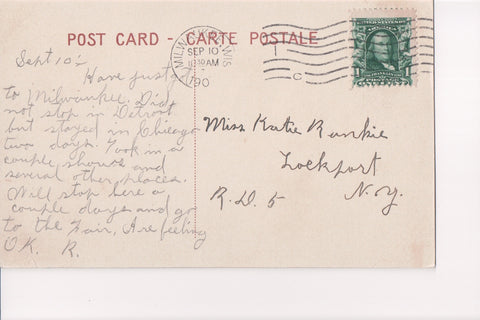 POST CARD - CARTE POSTALE
MILWAUKEE, WIS.
SEP 10
30 AM
190
1
C
1
Sept 10
Have just
to Milwaukee, Did
not stop in Detroit
but stayed in Chicago
two days. Took in a
couple shows and
several other places.
Will stop here a
couple days and go
to the Fair, Are feeling
OK. R.
Miss Katie Runkie
Lockport
R.D. 5 N.Y.